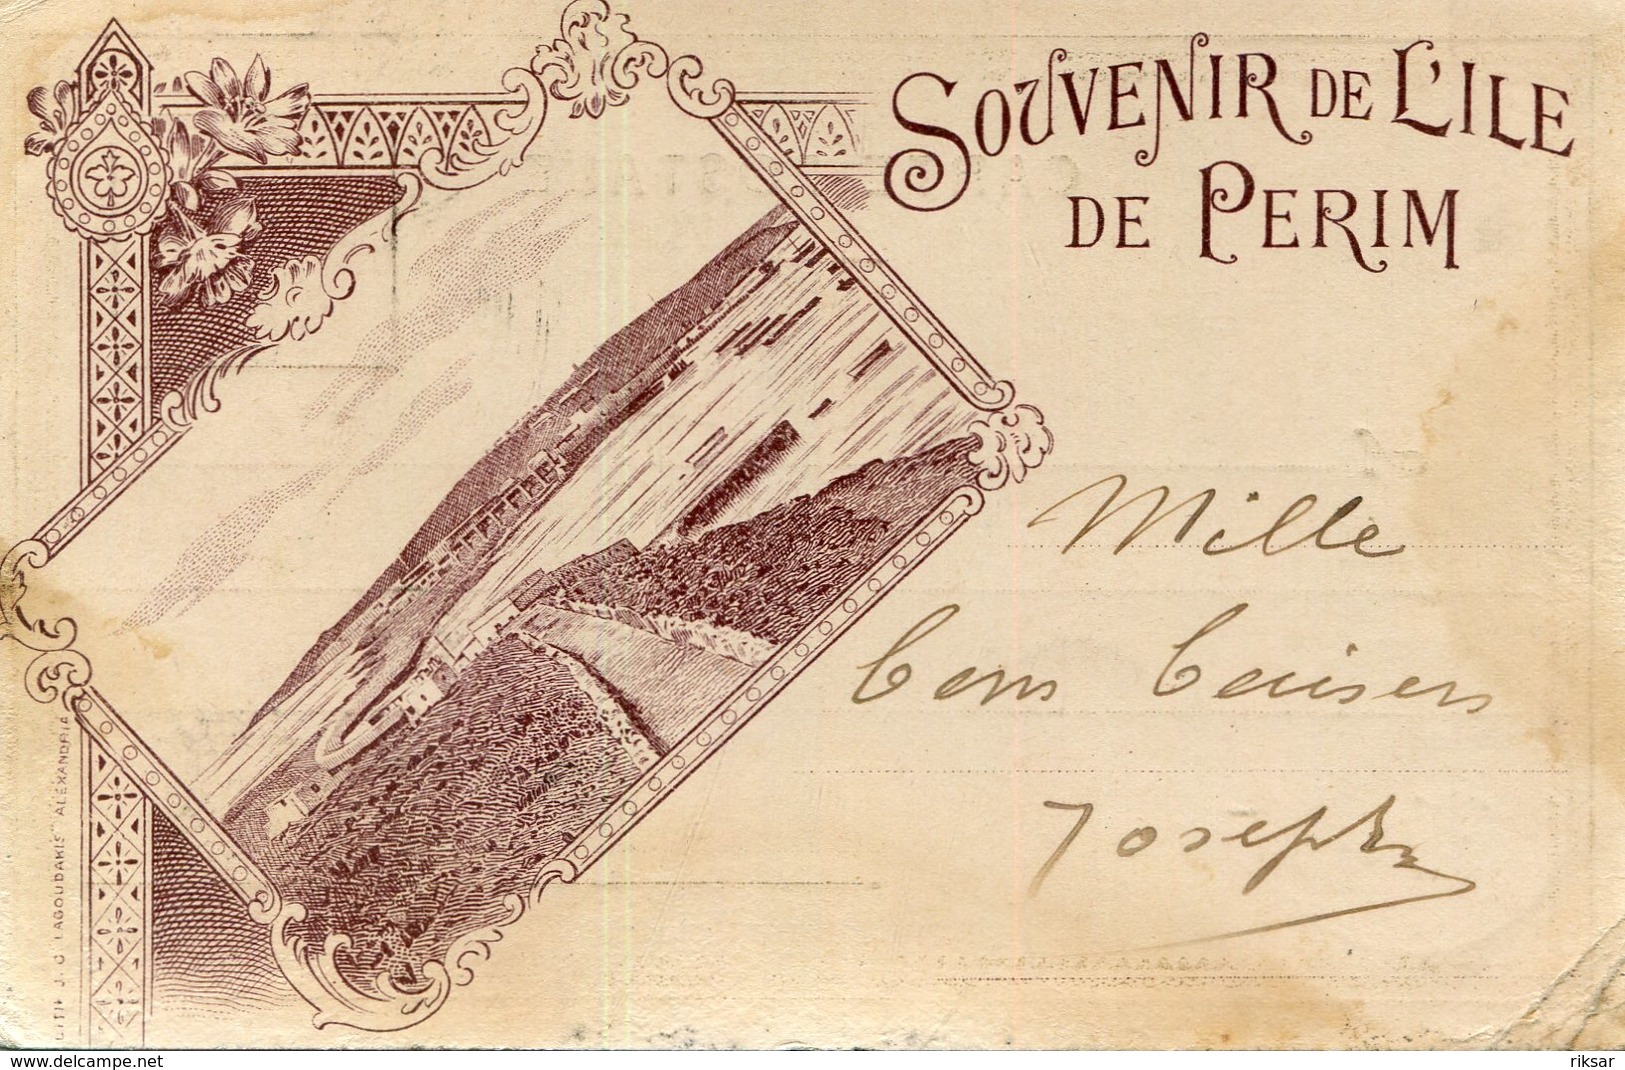 SOUVENIR DE L'ILE
DE PERIM
Mille
bons baisers
Joseph
LITH. J. C. LAGOUDAKIS ALEXANDRIA
www.delcampe.net
riksar